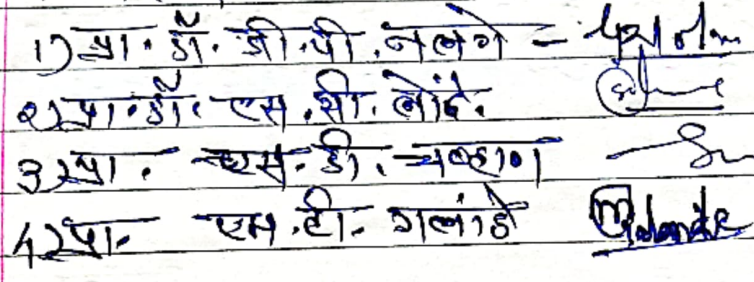 1) प्रा. डॉ. जी. पी. नलगे -
2) प्रा. डॉ. एस. सी. लोंढे.
3) प्रा. एस. डी. चव्हाण
4) प्रा. एस. टी. गलांडे